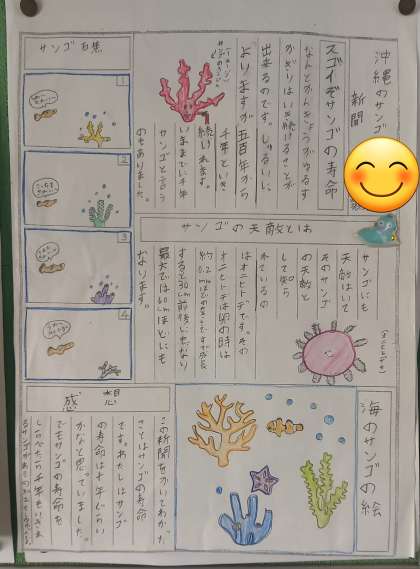 沖縄のサンゴ
新聞
スゴイぞサンゴの寿命
なんとかんきょうがゆるす
かぎりはいき続けることが
出来るのです。しゅるいに
よりますが五百年から
千年といき
続けれます。
いままでに千年
サンゴと言う
のもありました。
サンゴの天敵とは
サンゴにも
天敵はいて
そのサンゴ
の天敵と
して知ら
れているの
はオニヒトデです。その
オニヒトデは卵の時は
約0.2mmほどの大きさですが成長
すると30cm前後にもなり
最大では60cmほどにも
なります。
(オニヒトデ)
海のサンゴの絵
サンゴ百景
1
2
3
4
感想
この新聞をかいてわかった
ことはサンゴの寿命
です。わたしはサンゴ
の寿命は十年ぐらい
かなと思っていました。
でもサンゴの寿命を
しらべたら千年もいきる